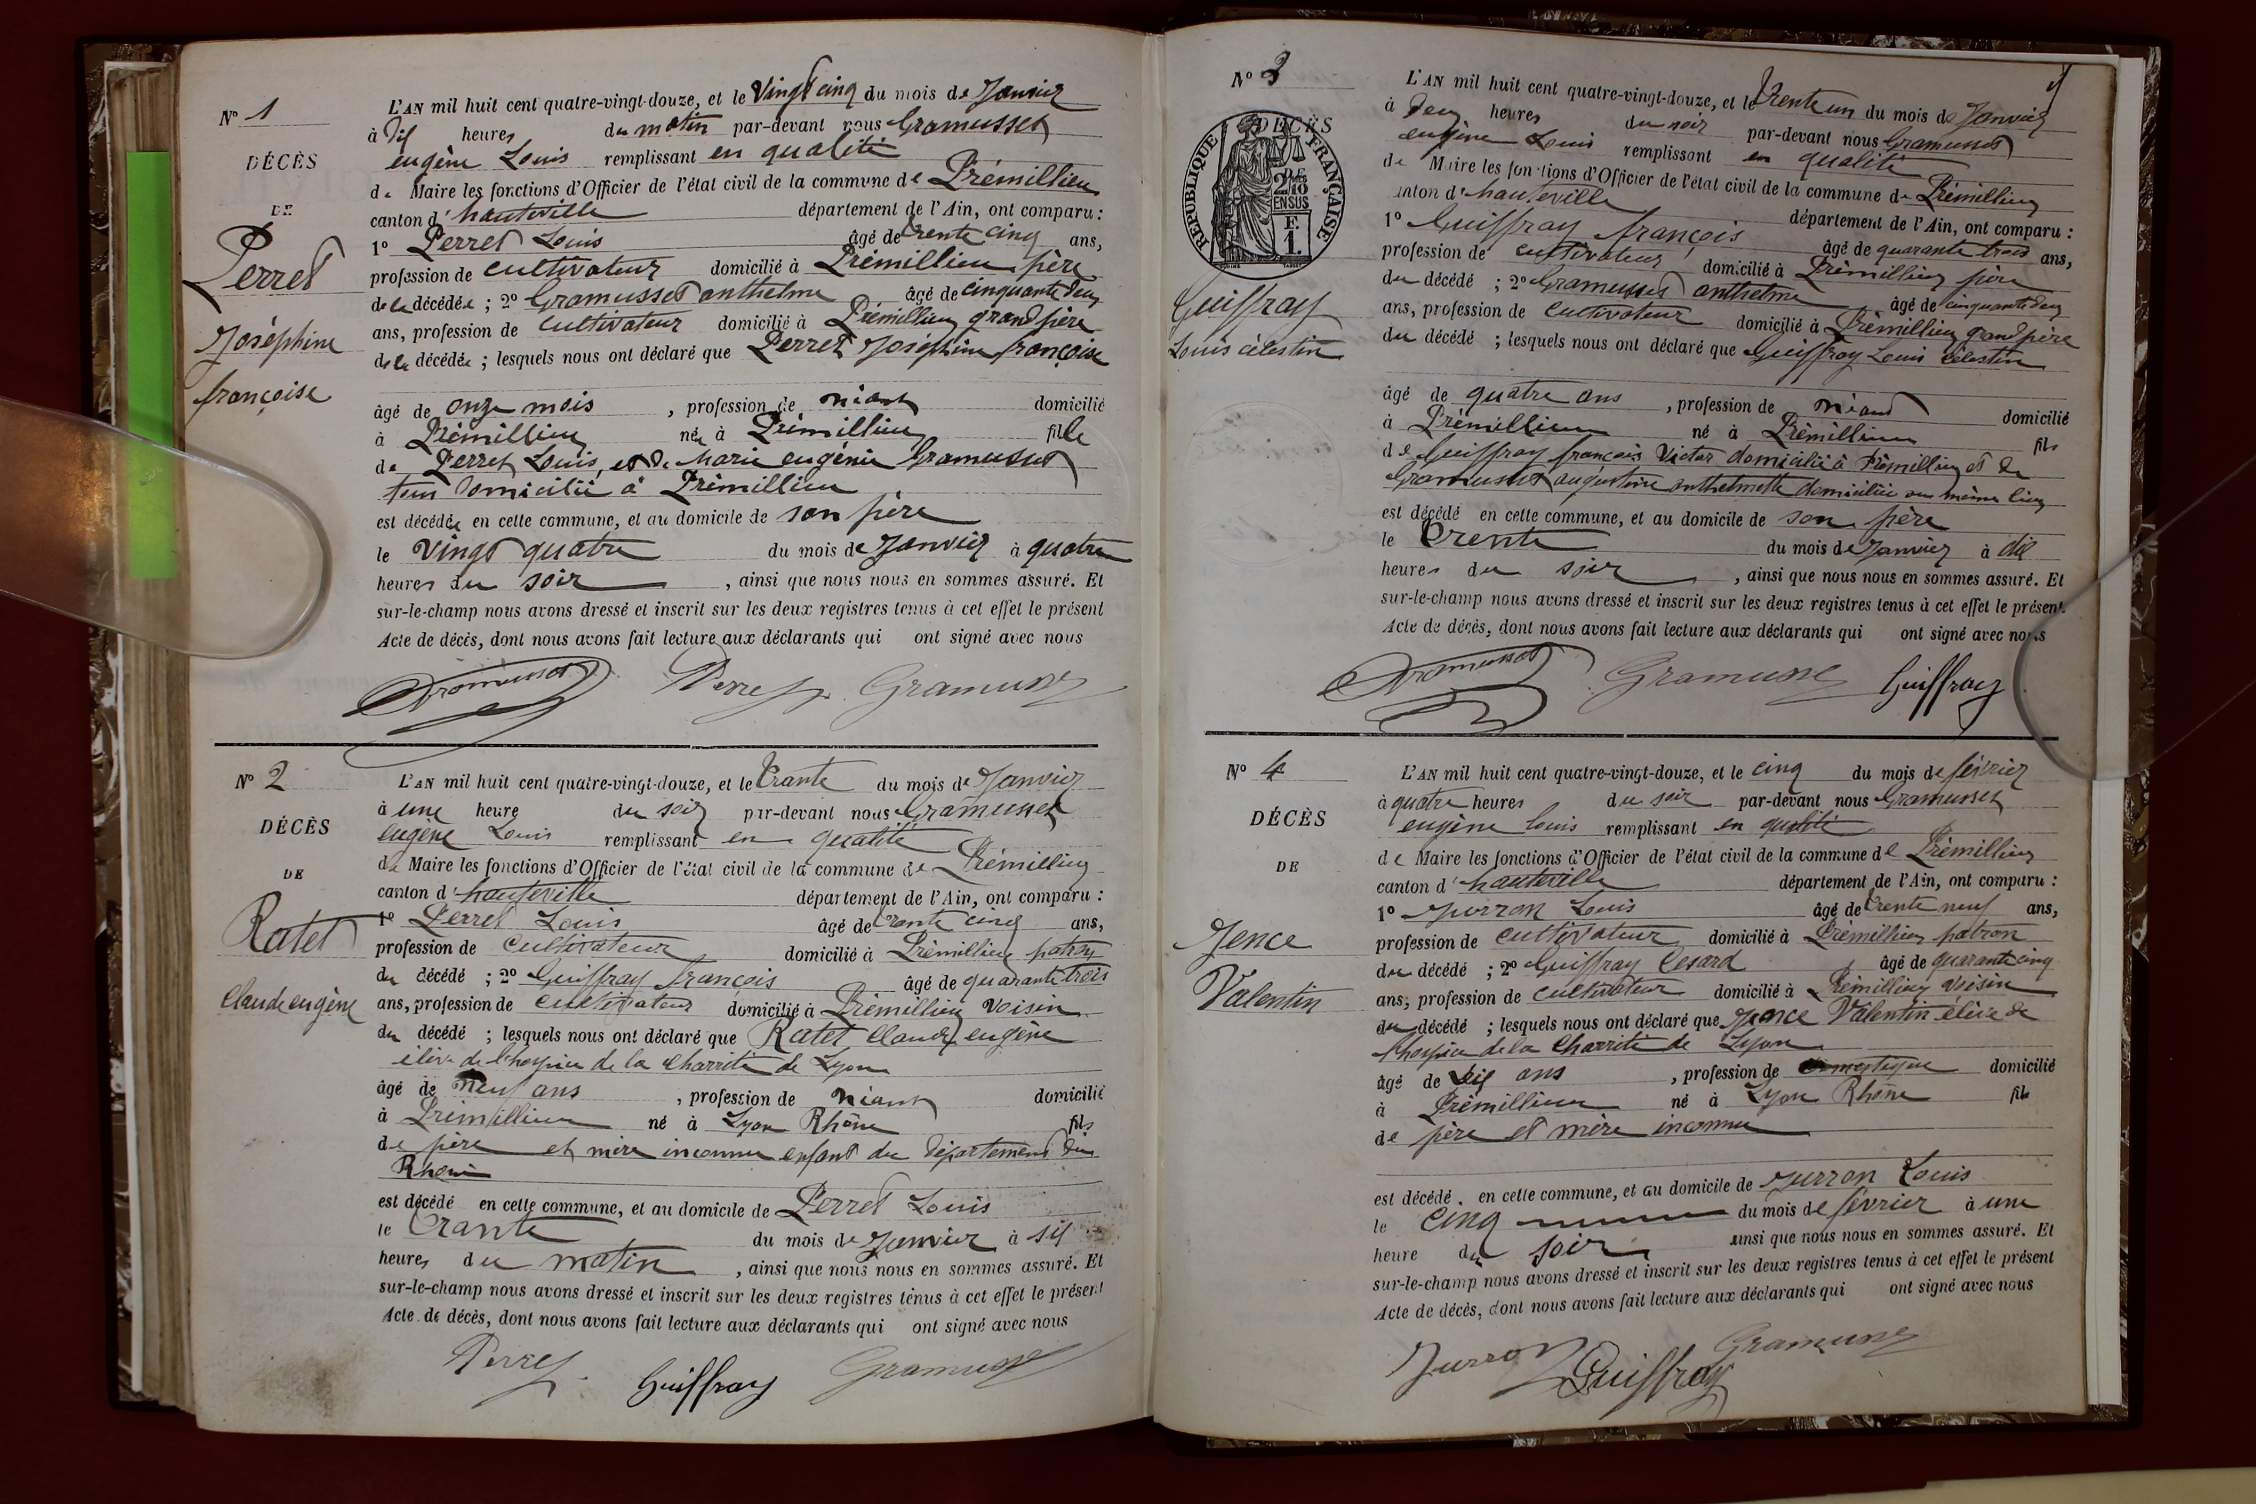 N° 1
DÉCÈS
DE
Perret
Joséphine
françoise
L'AN mil huit cent quatre-vingt-douze, et le Vingt cinq du mois de Janvier
à dix heures du matin par-devant nous Gramusset
eugène Louis remplissant en qualité
de Maire les fonctions d'Officier de l'état civil de la commune de Prémillieu
canton d'hauteville département de l'Ain, ont comparu :
1° Perret Louis âgé de trente cinq ans,
profession de cultivateur domicilié à Prémillieu père
de la décédée ; 2° Gramusset anthelme âgé de cinquante deux
ans, profession de cultivateur domicilié à Prémillieu grand père
de la décédée ; lesquels nous ont déclaré que Perret Joséphine françoise
âgé de onze mois , profession de néant domicilié
à Prémillieu née à Prémillieu fille
de Perret Louis, et de Marie eugénie Gramusset
tous domicilié à Prémillieu
est décédée en cette commune, et au domicile de son père
le vingt quatre du mois de Janvier à quatre
heures du soir , ainsi que nous nous en sommes assuré. Et
sur-le-champ nous avons dressé et inscrit sur les deux registres tenus à cet effet le présent
Acte de décès, dont nous avons fait lecture aux déclarants qui ont signé avec nous
Gramusset Perret Gramusset
N° 2
DÉCÈS
DE
Ratet
Claude eugène
L'AN mil huit cent quatre-vingt-douze, et le trante du mois de Janvier
à une heure du soir par-devant nous Gramusset
eugène Louis remplissant en qualité
de Maire les fonctions d'Officier de l'état civil de la commune de Prémillieu
canton d'hauteville département de l'Ain, ont comparu :
1° Perret Louis âgé de trante cinq ans,
profession de cultivateur domicilié à Prémillieu patron
du décédé ; 2° Guiffray françois âgé de quarante trois
ans, profession de cultivateur domicilié à Prémillieu voisin
du décédé ; lesquels nous ont déclaré que Ratet Claude eugène
élève de l'hospice de la Charrité de Lyon
âgé de neuf ans , profession de néant domicilié
à Prémillieu né à Lyon Rhône fils
de père et mère inconnu enfant du département du
Rhône
est décédé en cette commune, et au domicile de Perret Louis
le trante du mois de Janvier à six
heures du matin , ainsi que nous nous en sommes assuré. Et
sur-le-champ nous avons dressé et inscrit sur les deux registres tenus à cet effet le présent
Acte de décès, dont nous avons fait lecture aux déclarants qui ont signé avec nous
Perret Guiffray Gramusset
N° 3
DÉCÈS
RÉPUBLIQUE FRANÇAISE
2 DES 10 EN SUS
F. 1.
Guiffray
Louis célestin
L'AN mil huit cent quatre-vingt-douze, et le trente un du mois de Janvier
à deux heures du soir par-devant nous Gramusset
eugène Louis remplissant en qualité
de Maire les fonctions d'Officier de l'état civil de la commune de Prémillieu
canton d'hauteville département de l'Ain, ont comparu :
1° Guiffray françois âgé de quarante trois ans,
profession de cultivateur domicilié à Prémillieu père
du décédé ; 2° Gramusset anthelme âgé de cinquante deux
ans, profession de cultivateur domicilié à Prémillieu grand père
du décédé ; lesquels nous ont déclaré que Guiffray Louis célestin
âgé de quatre ans , profession de néant domicilié
à Prémillieu né à Prémillieu fils
de Guiffray françois Victor domicilié à Prémillieu et de
Gramusset augustine anthelmette domiciliée au même lieu
est décédé en cette commune, et au domicile de son père
le trente du mois de Janvier à dix
heures du soir , ainsi que nous nous en sommes assuré. Et
sur-le-champ nous avons dressé et inscrit sur les deux registres tenus à cet effet le présent
Acte de décès, dont nous avons fait lecture aux déclarants qui ont signé avec nous
Gramusset Gramusset Guiffray
N° 4
DÉCÈS
DE
Jence
Valentin
L'AN mil huit cent quatre-vingt-douze, et le cinq du mois de février
à quatre heures du soir par-devant nous Gramusset
eugène louis remplissant en qualité
de Maire les fonctions d'Officier de l'état civil de la commune de Prémillieu
canton d'hauteville département de l'Ain, ont comparu :
1° Jurron Louis âgé de trente neuf ans,
profession de cultivateur domicilié à Prémillieu patron
du décédé ; 2° Guiffray Cesard âgé de quarante cinq
ans, profession de cultivateur domicilié à Prémillieu voisin
du décédé ; lesquels nous ont déclaré que Jence Valentin élève de
l'hospice de la Charrité de Lyon
âgé de dix ans , profession de domestique domicilié
à Prémillieu né à Lyon Rhône fils
de père et mère inconnu
est décédé en cette commune, et au domicile de Jurron Louis
le cinq du mois de février à une
heure du soir ainsi que nous nous en sommes assuré. Et
sur-le-champ nous avons dressé et inscrit sur les deux registres tenus à cet effet le présent
Acte de décès, dont nous avons fait lecture aux déclarants qui ont signé avec nous
Jurron Guiffray Gramusset